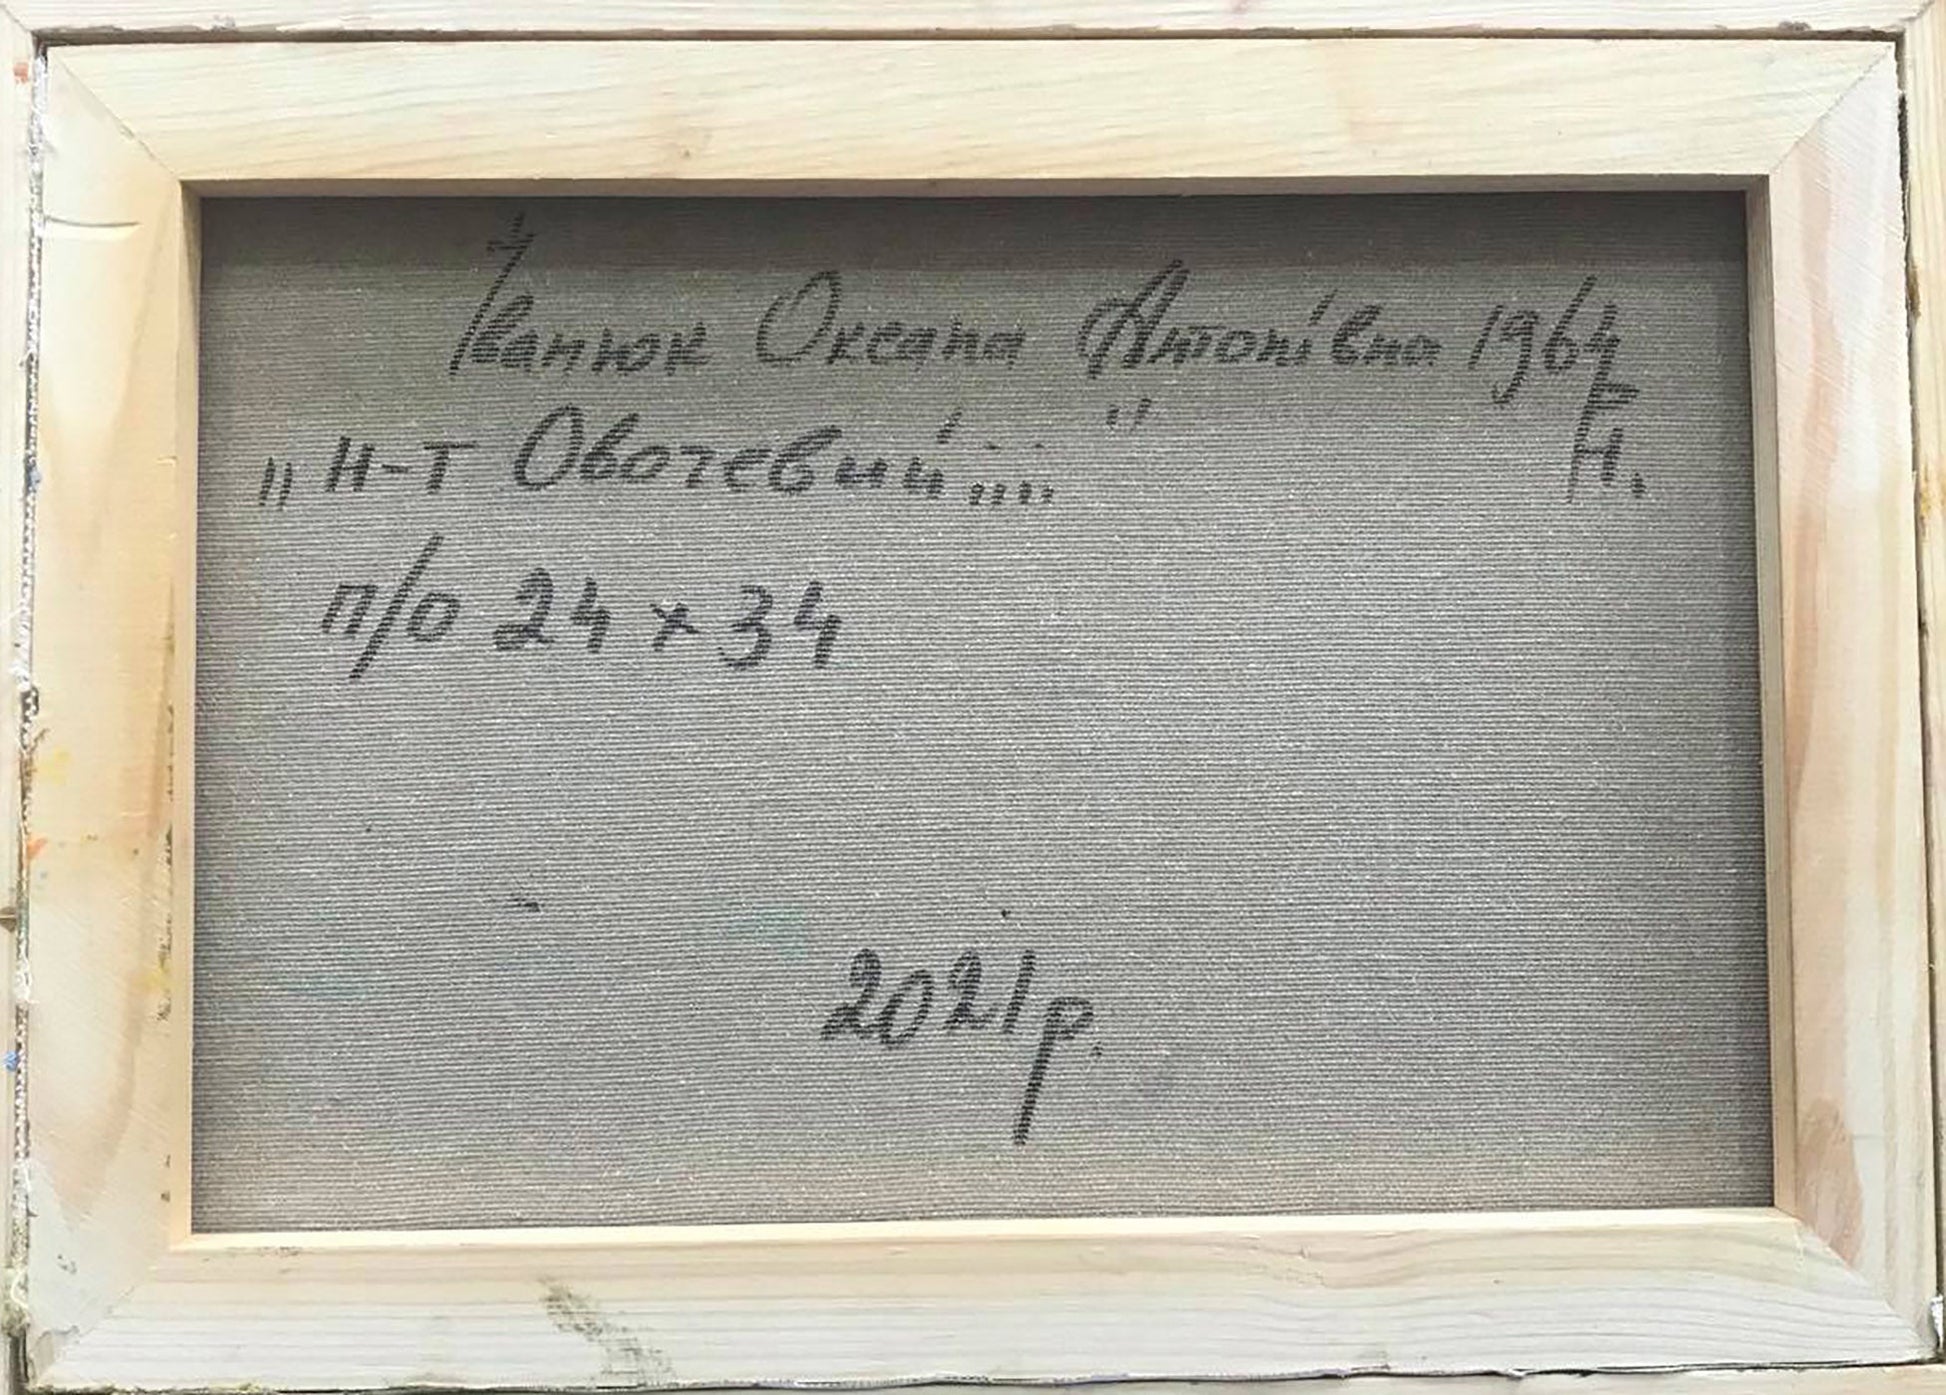 Іванюк Оксана Антонівна 1964
н.
„Н-т Овочевий....."
п/о 24 х 34
2021р.